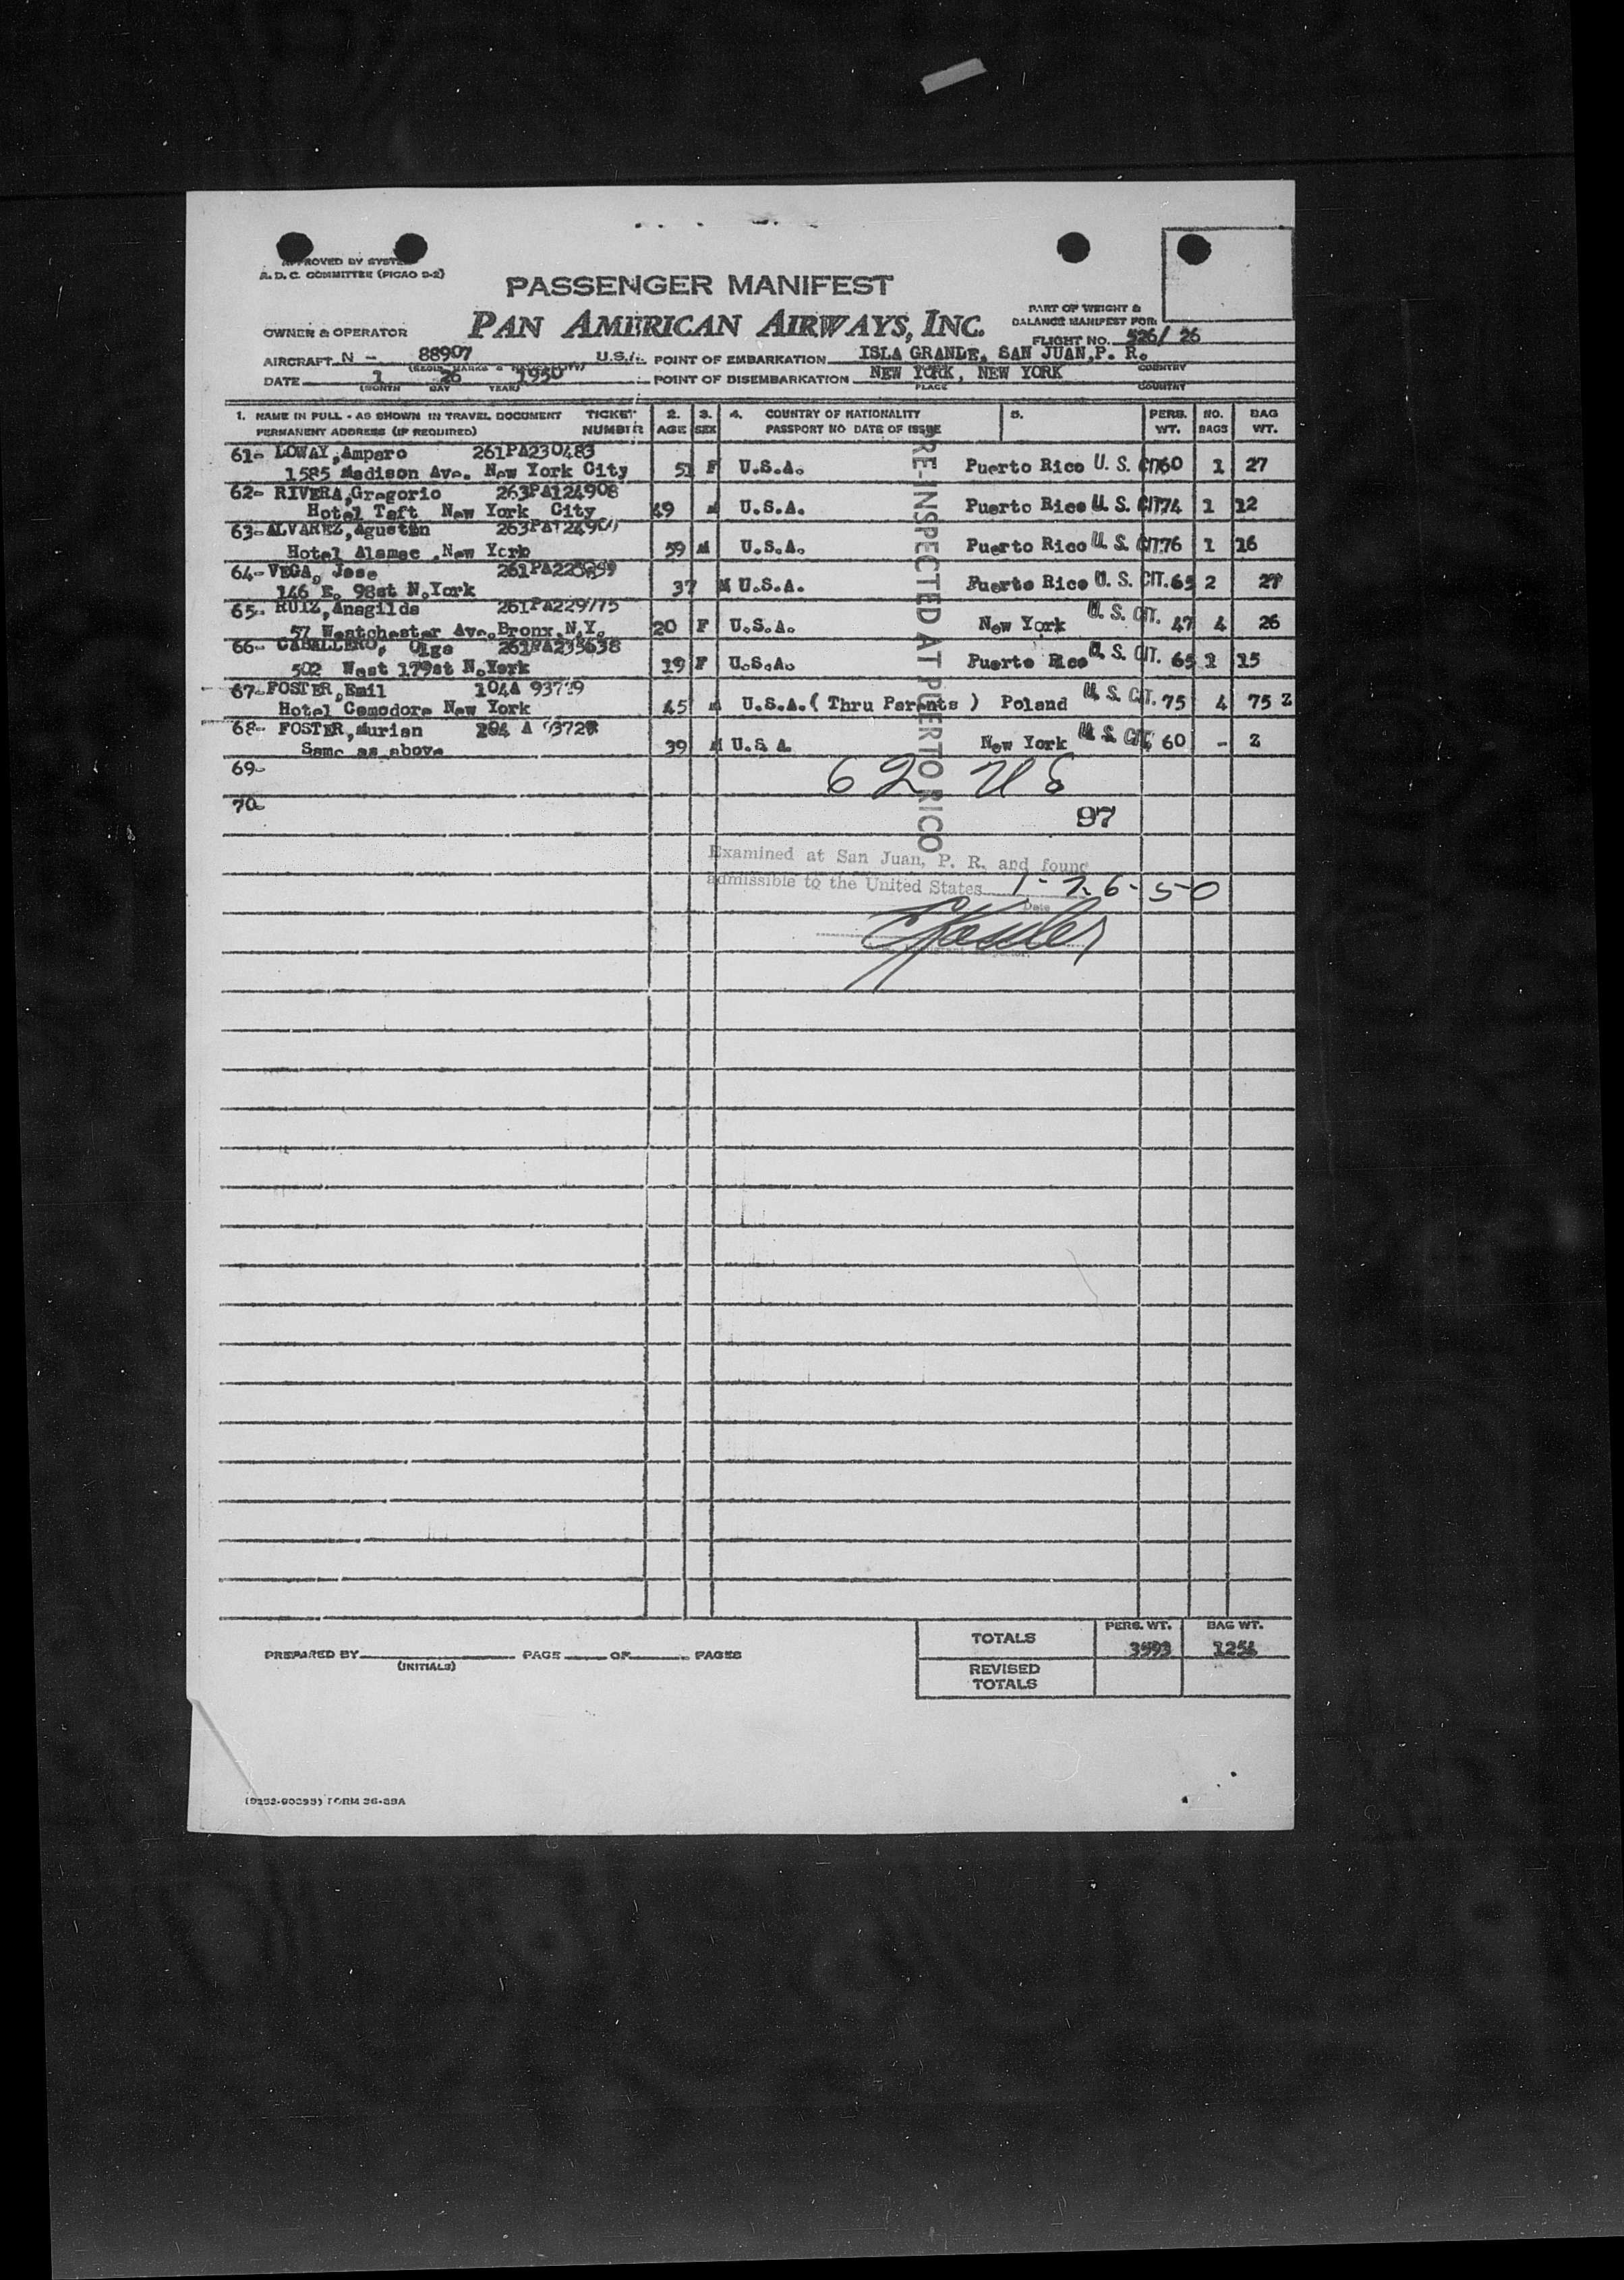 APPROVED BY SYSTEM
A. D. C. COMMITTEE (PICAO 9-2)
PASSENGER MANIFEST
PAN AMERICAN AIRWAYS, INC.
PART OF WEIGHT &
BALANCE MANIFEST FOR:
FLIGHT NO. 526/ 26
OWNER & OPERATOR
AIRCRAFT N - 88907 U.S.A. POINT OF EMBARKATION ISLA GRANDE, SAN JUAN, P. R.
COUNTRY
DATE 1 26 1950 POINT OF DISEMBARKATION NEW YORK, NEW YORK
(MONTH DAY YEAR) PLACE COUNTRY
1. NAME IN FULL - AS SHOWN IN TRAVEL DOCUMENT TICKET 2. 3. 4. COUNTRY OF NATIONALITY 5. PERS. NO. BAG
PERMANENT ADDRESS (IF REQUIRED) NUMBER AGE SEX PASSPORT NO DATE OF ISSUE WT. BAGS WT.
61- LOWAY,Amparo 261PA230483
1585 Madison Ave. New York City 51 F U.S.A. Puerto Rico U. S. CIT 60 1 27
62- RIVERA,Gregorio 263PA124908
Hotel Taft New York City 49 M U.S.A. Puerto Rico U. S. CIT 74 1 12
63- ALVAREZ,Agustin
Hotel Alamac ,New York 59 M U.S.A. Puerto Rico U. S. CIT 76 1 16
64- VEGA, Jose
146 E. 98st N.York 37 M U.S.A. Puerto Rico U. S. CIT. 65 2 27
65- RUIZ,Anagilda 261PA229775
57 Westchester Ave.Bronx,N.Y. 20 F U.S.A. New York U. S. CIT. 47 4 26
66- CABALLERO, Olga 261PA235638
502 West 179st N.York 19 F U.S.A. Puerto Rico U. S. CIT. 65 1 15
67- FOSTER,Emil 104A
Hotel Comodore New York 45 M U.S.A.( Thru Parents ) Poland U. S. CIT. 75 4 75 Z
68- FOSTER,Murian
Same as above 39 M U.S.A. New York U. S. CIT. 60 - Z
69-
70-
PRE-INSPECTED AT PUERTO RICO
62 US
97
Examined at San Juan, P. R. and found
admissible to the United States 1-26-50
Date
TOTALS
PERS. WT. BAG WT.
3593 1256
PREPARED BY PAGE OF PAGES
(INITIALS)
REVISED
TOTALS
FORM 36-38A